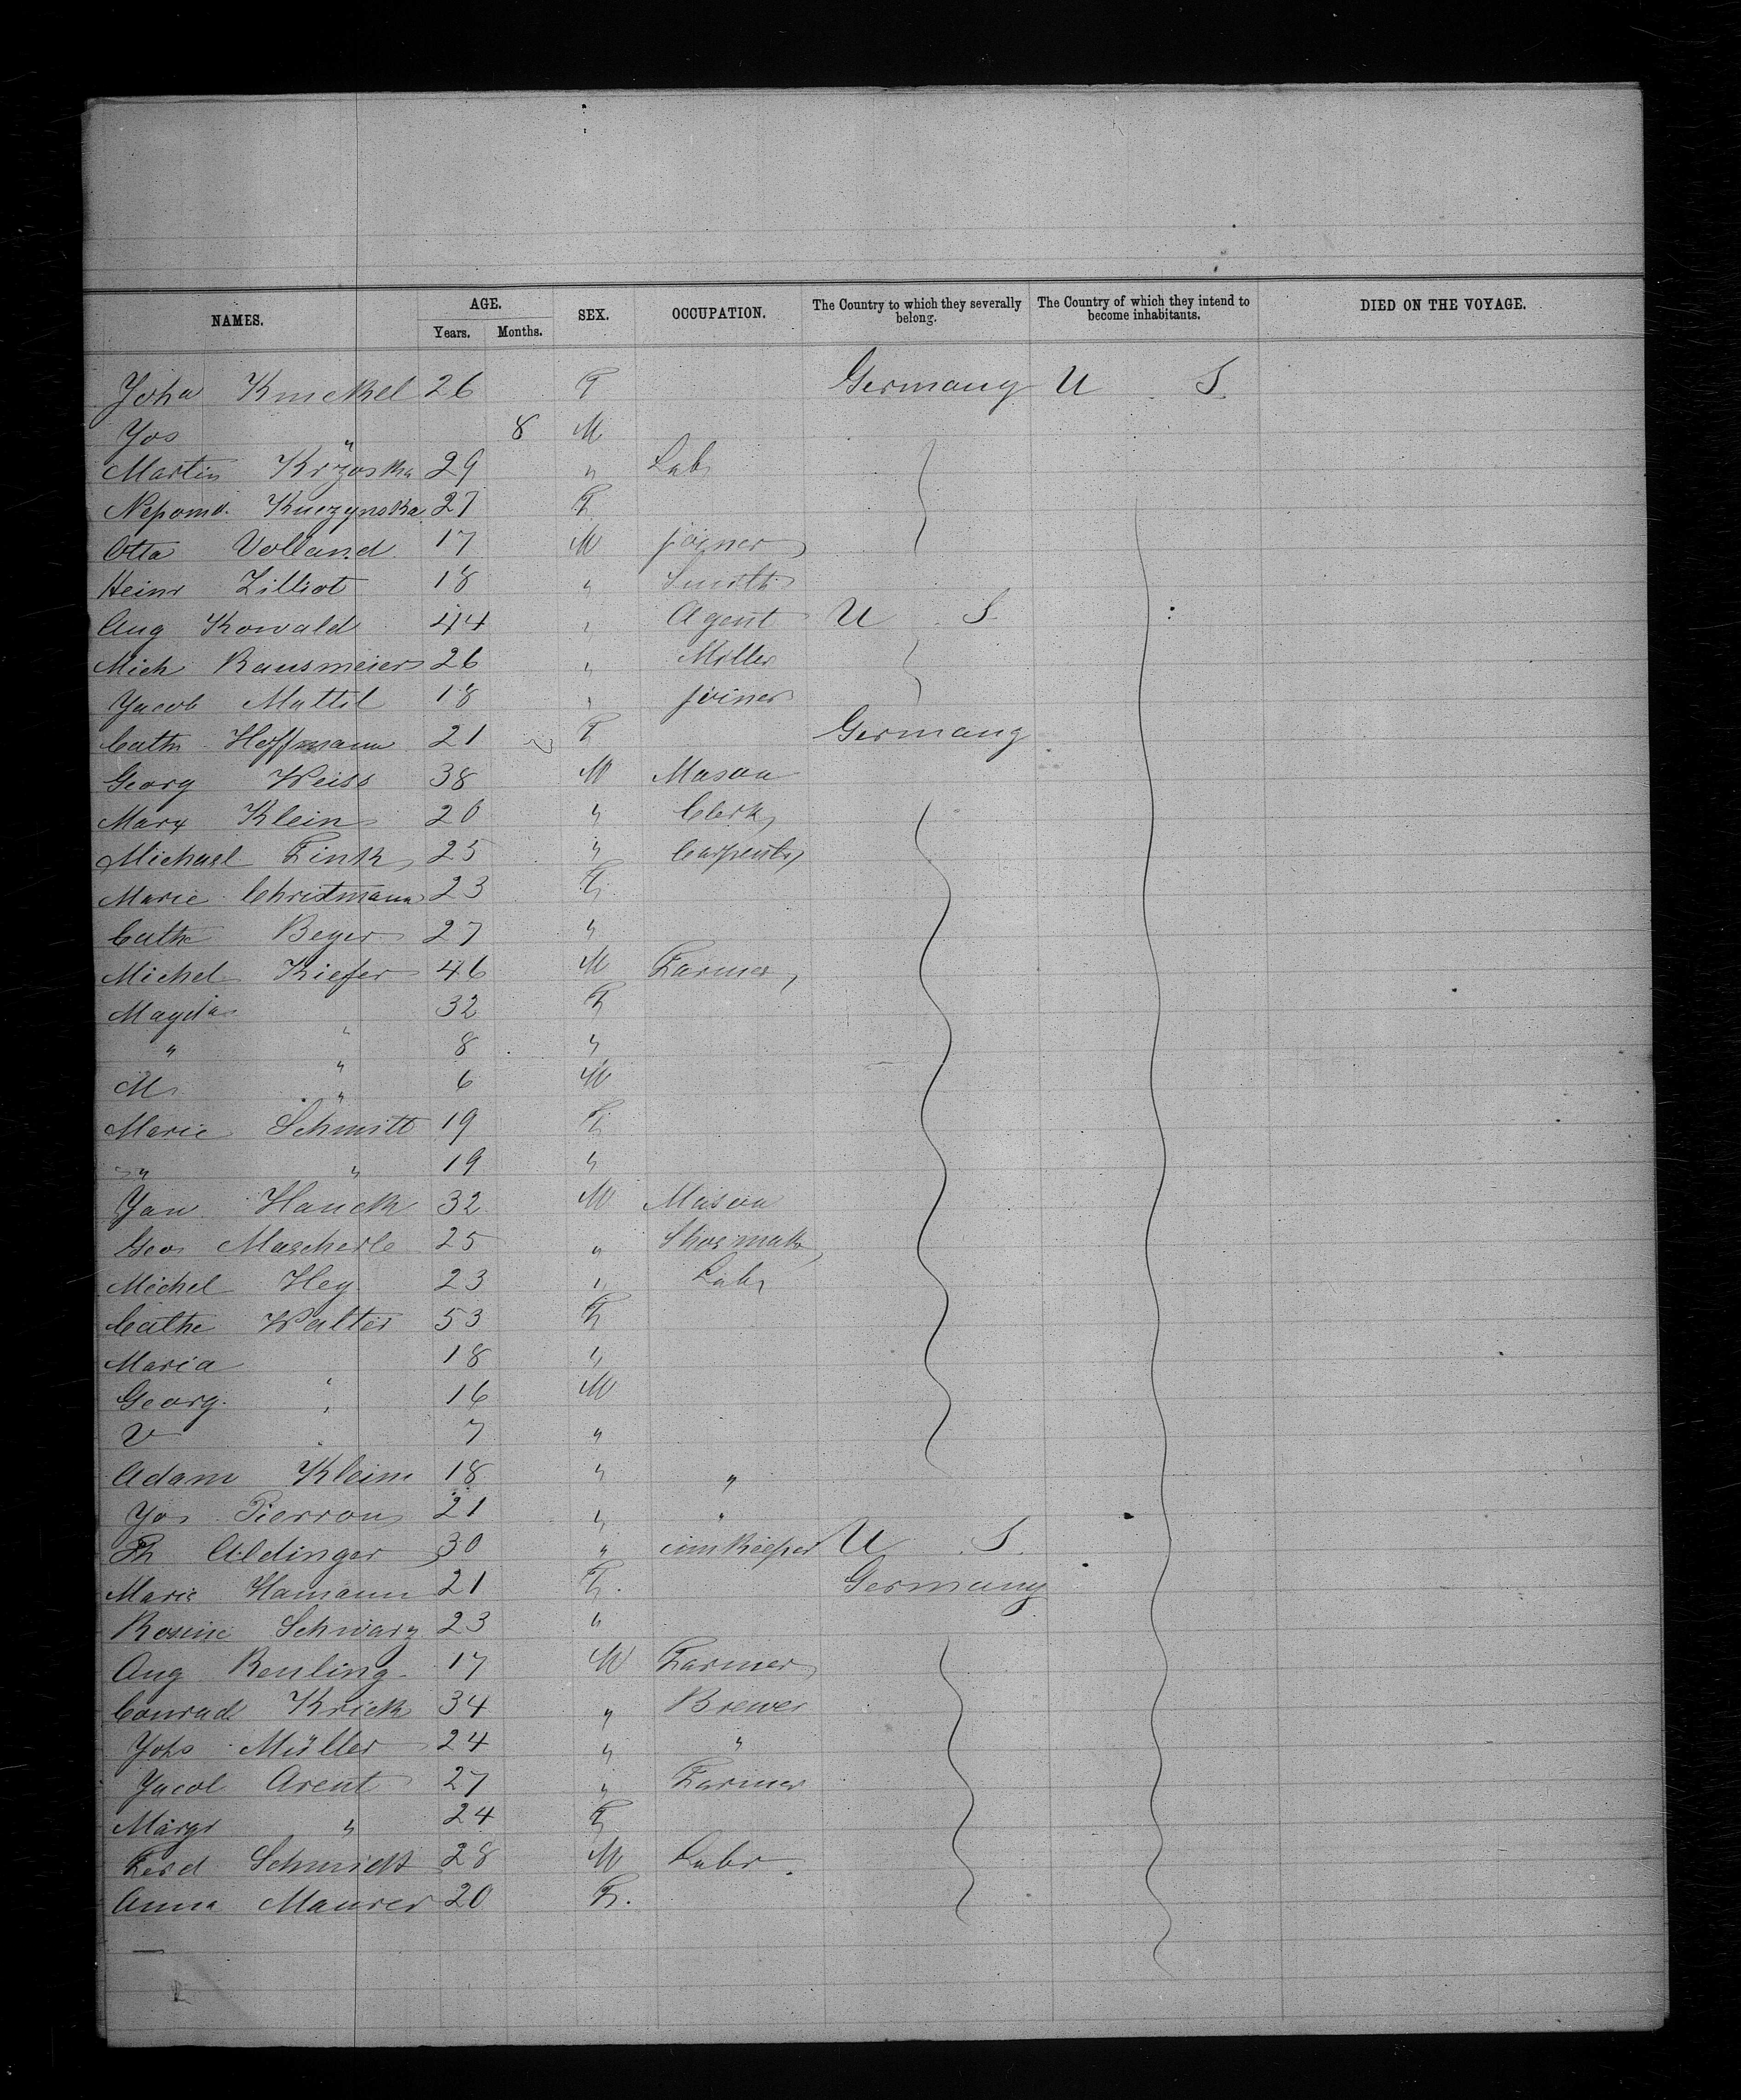 NAMES. AGE. SEX. OCCUPATION. The Country to which they severally belong. The Country of which they intend to become inhabitants. DIED ON THE VOYAGE.
Years. Months.
Joha Knickel 26 F Germany U S
Jos " 8 M
Martin Krzoska 29 " Lab
Nepomu. Kuczynska 27 F
Otto Volland 17 M joiner
Heinr Zilliot 18 " Smith
Aug Kowald 44 " Agent U S
Mich Rausmeier 26 " Miller
Jacob Mattil 18 " joiner
Cath Hoffmann 21 F Germany
Georg Weiss 38 M Mason
Marx Klein 20 " Clerk
Michael Fink 25 " Carpentr
Marie Christmann 23 F
Cathe Beyer 27 "
Michel Kiefer 46 M Farmer
Magda " 32 F
" " 8 "
M " 6 M
Marie Schmitt 19 F
" " 19 "
Jan Hauck 32 M Mason
Geor Mascherle 25 " Shoemak
Michel Hey 23 " Labr
Cathe Walter 53 F
Maria " 18 "
Georg " 16 M
V 7 "
Adam Klein 18 " "
Jos Pierron 21 " "
Ph Aldinger 30 " innkeeper U S
Marie Hamann 21 F. Germany
Rosine Schwarz 23 "
Aug Reuling 17 M Farmer
Conrad Krick 34 " Brewer
Johs Müller 24 " "
Jacob Arent 27 " Farmer
Margr " 24 F
Ferd Schmidt 28 M Labr.
Anna Maurer 20 F.